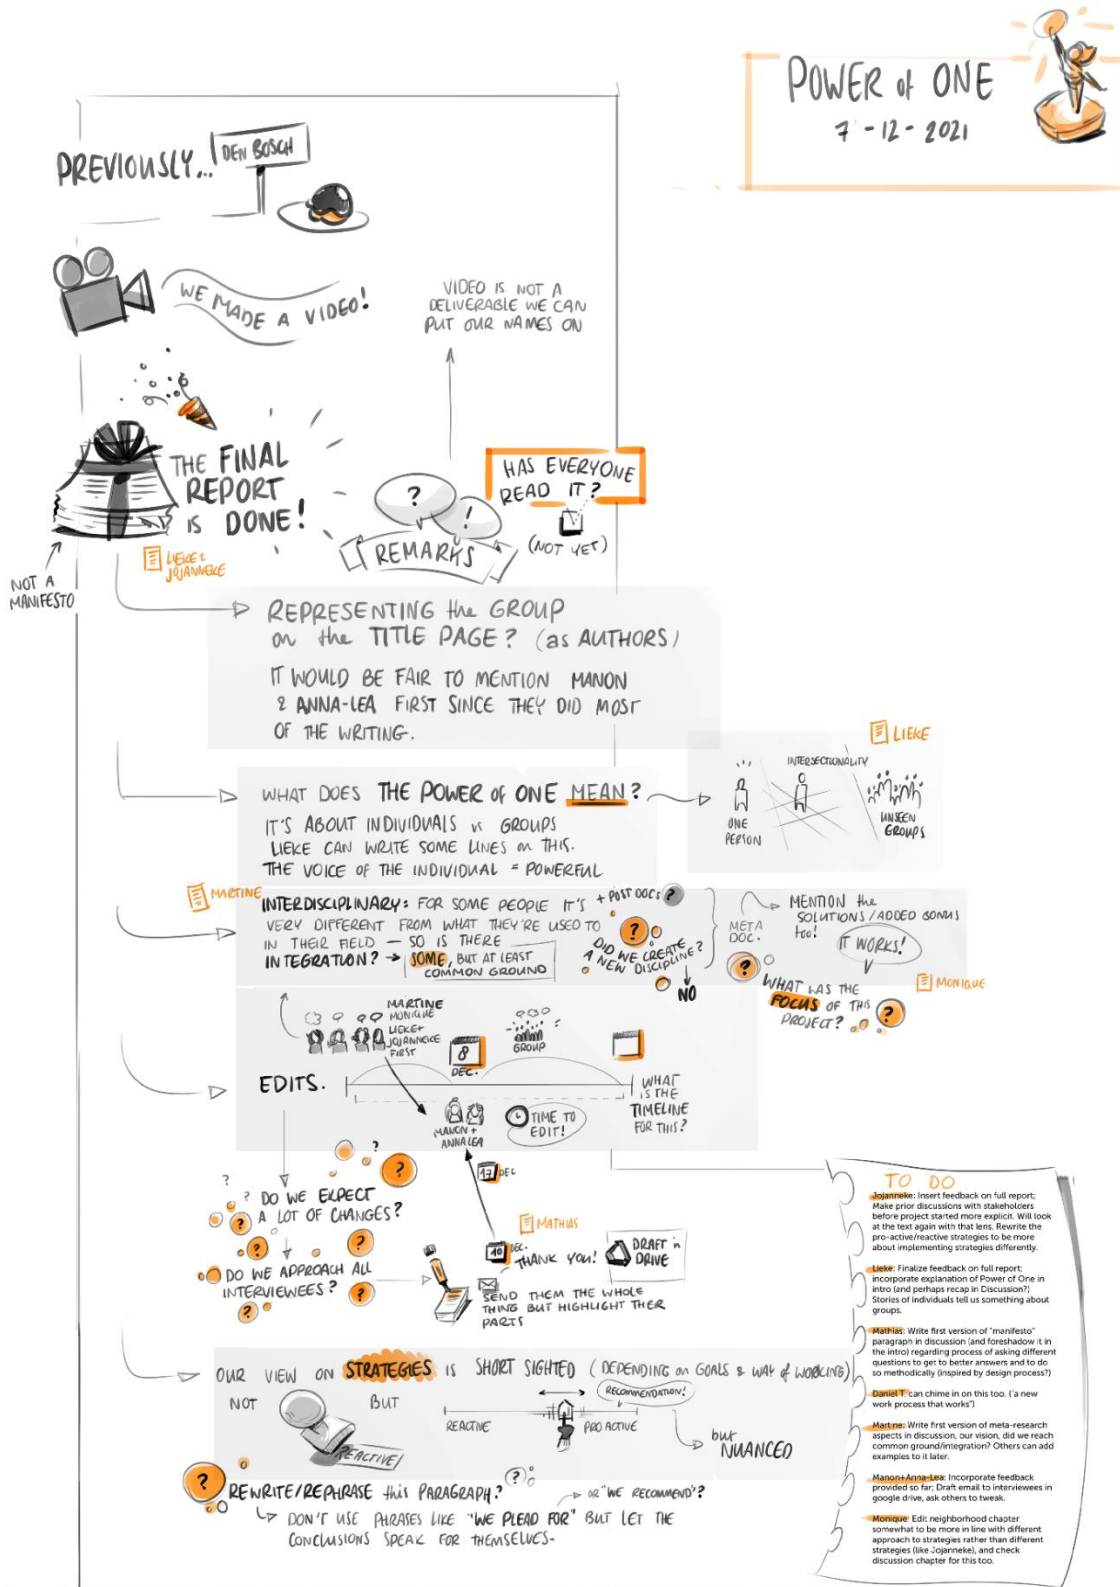 POWER of ONE
7-12-2021
PREVIOUSLY...
DEN BOSCH
WE MADE A VIDEO!
VIDEO IS NOT A
DELIVERABLE WE CAN
PUT OUR NAMES ON
THE FINAL
REPORT
IS DONE!
NOT A
MANIFESTO
LIEKE &
JOJANNEKE
?
!
REMARKS
HAS EVERYONE
READ IT?
(NOT YET)
REPRESENTING the GROUP
on the TITLE PAGE? (as AUTHORS)
IT WOULD BE FAIR TO MENTION MANON
& ANNA-LEA FIRST SINCE THEY DID MOST
OF THE WRITING.
WHAT DOES THE POWER of ONE MEAN?
IT'S ABOUT INDIVIDUALS vs GROUPS
LIEKE CAN WRITE SOME LINES on THIS.
THE VOICE OF THE INDIVIDUAL = POWERFUL
LIEKE
INTERSECTIONALITY
ONE
PERSON
UNSEEN
GROUPS
MARTINE
INTERDISCIPLINARY: FOR SOME PEOPLE IT'S
VERY DIFFERENT FROM WHAT THEY'RE USED TO
IN THEIR FIELD — SO IS THERE
INTEGRATION? → SOME, BUT AT LEAST
COMMON GROUND
+ POST DOCS ?
?
DID WE CREATE
A NEW DISCIPLINE?
NO
META
DOC.
MENTION the
SOLUTIONS/ADDED BONUS
too!
IT WORKS!
MONIQUE
?
WHAT WAS THE
FOCUS OF THIS
PROJECT?
?
EDITS.
MARTINE
MONIQUE
LIEKE+
JOJANNEKE
FIRST
8
DEC.
GROUP
WHAT
IS THE
TIMELINE
FOR THIS?
MANON +
ANNA LEA
TIME TO
EDIT!
17 DEC
? ?
? ?
DO WE EXPECT
A LOT OF CHANGES?
?
? ?
DO WE APPROACH ALL
INTERVIEWEES?
? ?
MATHIAS
10 DEC.
THANK YOU!
DRAFT in
DRIVE
SEND THEM THE WHOLE
THING BUT HIGHLIGHT THEIR
PARTS
OUR VIEW ON STRATEGIES IS SHORT SIGHTED (DEPENDING on GOALS & WAY of WORKING)
NOT
REACTIVE!
BUT
RECOMMENDATION!
REACTIVE
PRO ACTIVE
but
NUANCED
?
REWRITE/REPHRASE this PARAGRAPH?
?
→ OR "WE RECOMMEND"?
DON'T USE PHRASES LIKE "WE PLEAD FOR" BUT LET THE
CONCLUSIONS SPEAK FOR THEMSELVES-
TO DO
Jojanneke: Insert feedback on full report;
Make prior discussions with stakeholders
before project started more explicit. Will look
at the text again with that lens. Rewrite the
pro-active/reactive strategies to be more
about implementing strategies differently.
Lieke: Finalize feedback on full report;
incorporate explanation of Power of One in
intro (and perhaps recap in Discussion?)
Stories of individuals tell us something about
groups.
Mathias: Write first version of "manifesto"
paragraph in discussion (and foreshadow it in
the intro) regarding process of asking different
questions to get to better answers and to do
so methodically (inspired by design process?)
Daniel T. can chime in on this too. ('a new
work process that works')
Martine: Write first version of meta-research
aspects in discussion, our vision, did we reach
common ground/integration? Others can add
examples to it later.
Manon+Anna-Lea: Incorporate feedback
provided so far; Draft email to interviewees in
google drive, ask others to tweak.
Monique: Edit neighborhood chapter
somewhat to be more in line with different
approach to strategies rather than different
strategies (like Jojanneke), and check
discussion chapter for this too.